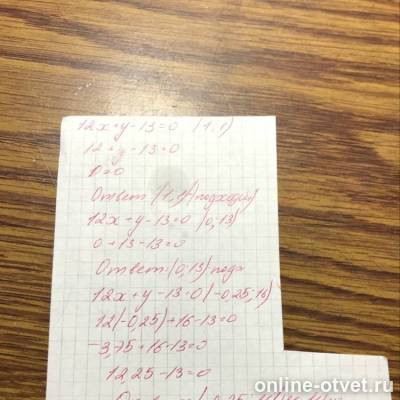 12x+y-13=0 (1,1)
12+y-13=0
0=0
Ответ (1,1) подходит
12x+y-13=0 (0,13)
0+13-13=0
Ответ: (0,13) подх
12x+y-13=0 (-0,25;16)
12(-0,25)+16-13=0
-3,75+16-13=0
12,25-13=0
online-otvet.ru